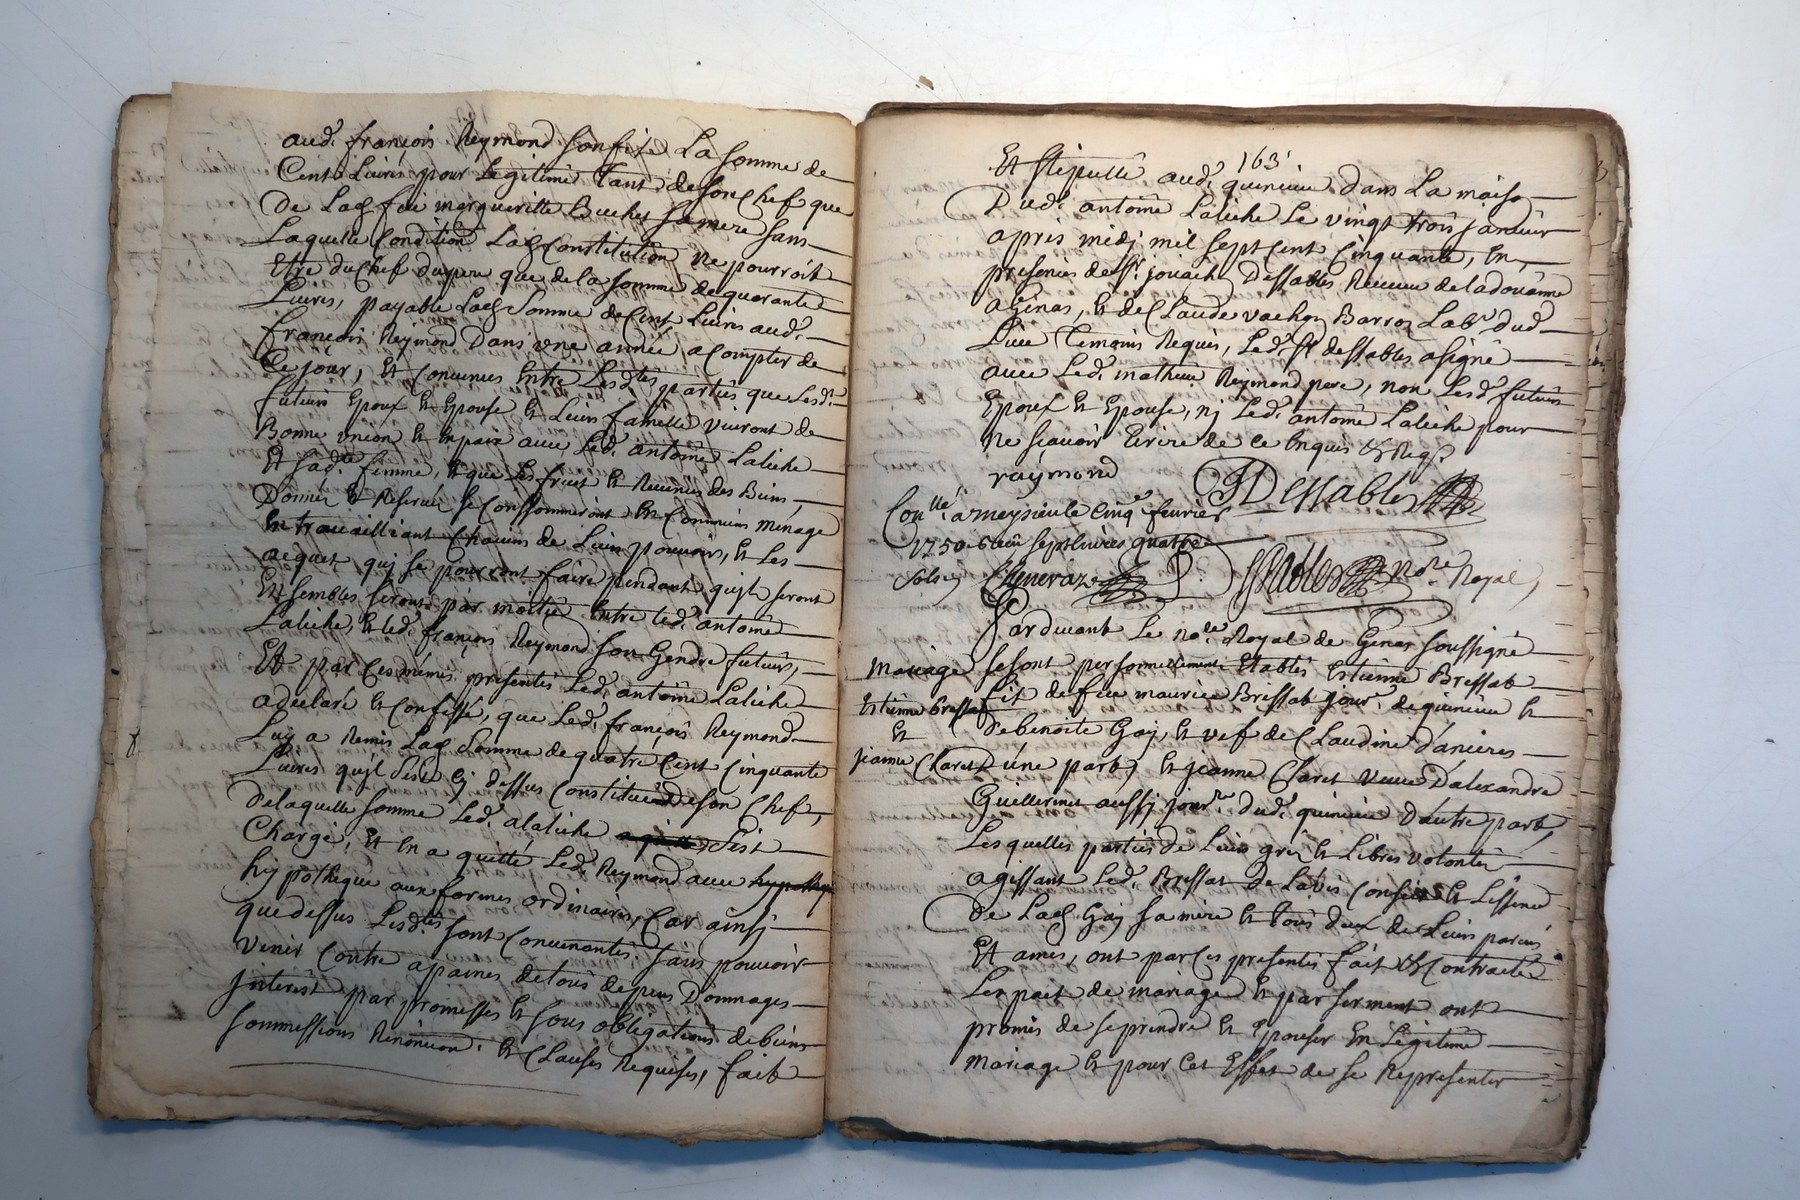 aud. françois Reymond son fils La somme de
Cent Livres pour Legitime tant de son Chef que
De Lad feüe margueritte Buches sa mere sans
Laquelle Condition Lad Constitution ne pourroit
Etre du Chef du pere que de la somme de quarante
Livres, payable Lad Somme de Cent Livres aud.
françois Reymond Dans une année a Compter de
Ce jour, Et Convenus Entre Lesdtes parties que Lesd.
futurs Epoux et Epouse et Leur famille vivront de
Bonne union et en paix avec Led. antoine Laliche
Et sade femme, et que Les fruit et Revenus des Biens
Donnés et Reservés se Conssommeront En Commun menage
En travailliant Chacuns de Leurs pouvoirs, et Les
acquet quj se pourront faire pendant qujls seront
Ensembles seront par moitié Entre led. antoine
Laliche, et led. françois Reymond son Gendre futur,
Et par Ces memes presentes Led. antoine Laliche
a declaré et Confessé, que Led. françois Reymond
Luy a Remis Lad Somme de quatre Cent Cinquante
Livres qujl s'est cj dessus Constitué de son Chef,
De laquelle somme Led. a laliche s'est
Chargé, Et En a quitté Led. Reymond avec
hypotheque aux formes ordinaires, Car ainsj
que dessus Lesdtes sont Convenantes sans pouvoir
venir Contre a paines de tous depens Dommages
jnterest par promesses et sous obligations de biens
sommissions Renoncions. et Clauses Requises, fait
163
Et stipullé aud. quincieu dans La maison
Dud. antoine Laliche Le vingt trois janvier
apres midj mil sept Cent Cinquante, En
presences de Sr. Dessables Receveur de la doüanne
a Genas, et de Claude vachon Barroz Labr. dud.
Lieu Temoins Requis, Led. Sr. dessables a signé
avec Led. mathieu Reymond pere, non Lesd. futurs
Epoux et Epouse, nj Led. antoine Laliche pour
ne sçavoir Ecrire de Ce Enquis et Requis
raymond Dessables
Conllé. a meysieu le Cinq fevrier
1750 Recu sept livres quatre
sols Dessables nore. Royal,
Pardevant Le nore. Royal de Genas soussigné
Mariage se sont personnellement Etablis Estienne Bressat
Estienne Bressat fils de feu maurice Bressat jour. de quincieu et
Et de benoite Gay, et vef de Claudine d'anieres
jeanne Claret D'une part, et jeanne Claret veuve D'alexandre
Guillermet aussj jourre. Dud. quincieu D'autre part,
Lesquelles parties de Leurs grés et Libres volontés
agissant Led. Bressat de L'avis Conseil et Lissence
De Lad Gay sa mere et tous deux de Leurs parens
Et amis, ont par Ces presentes fait et Contracté
Les pact de mariage et par serment ont
promis de se prendre et Epouser En Légitime
mariage et pour Cet Effet de se Representer